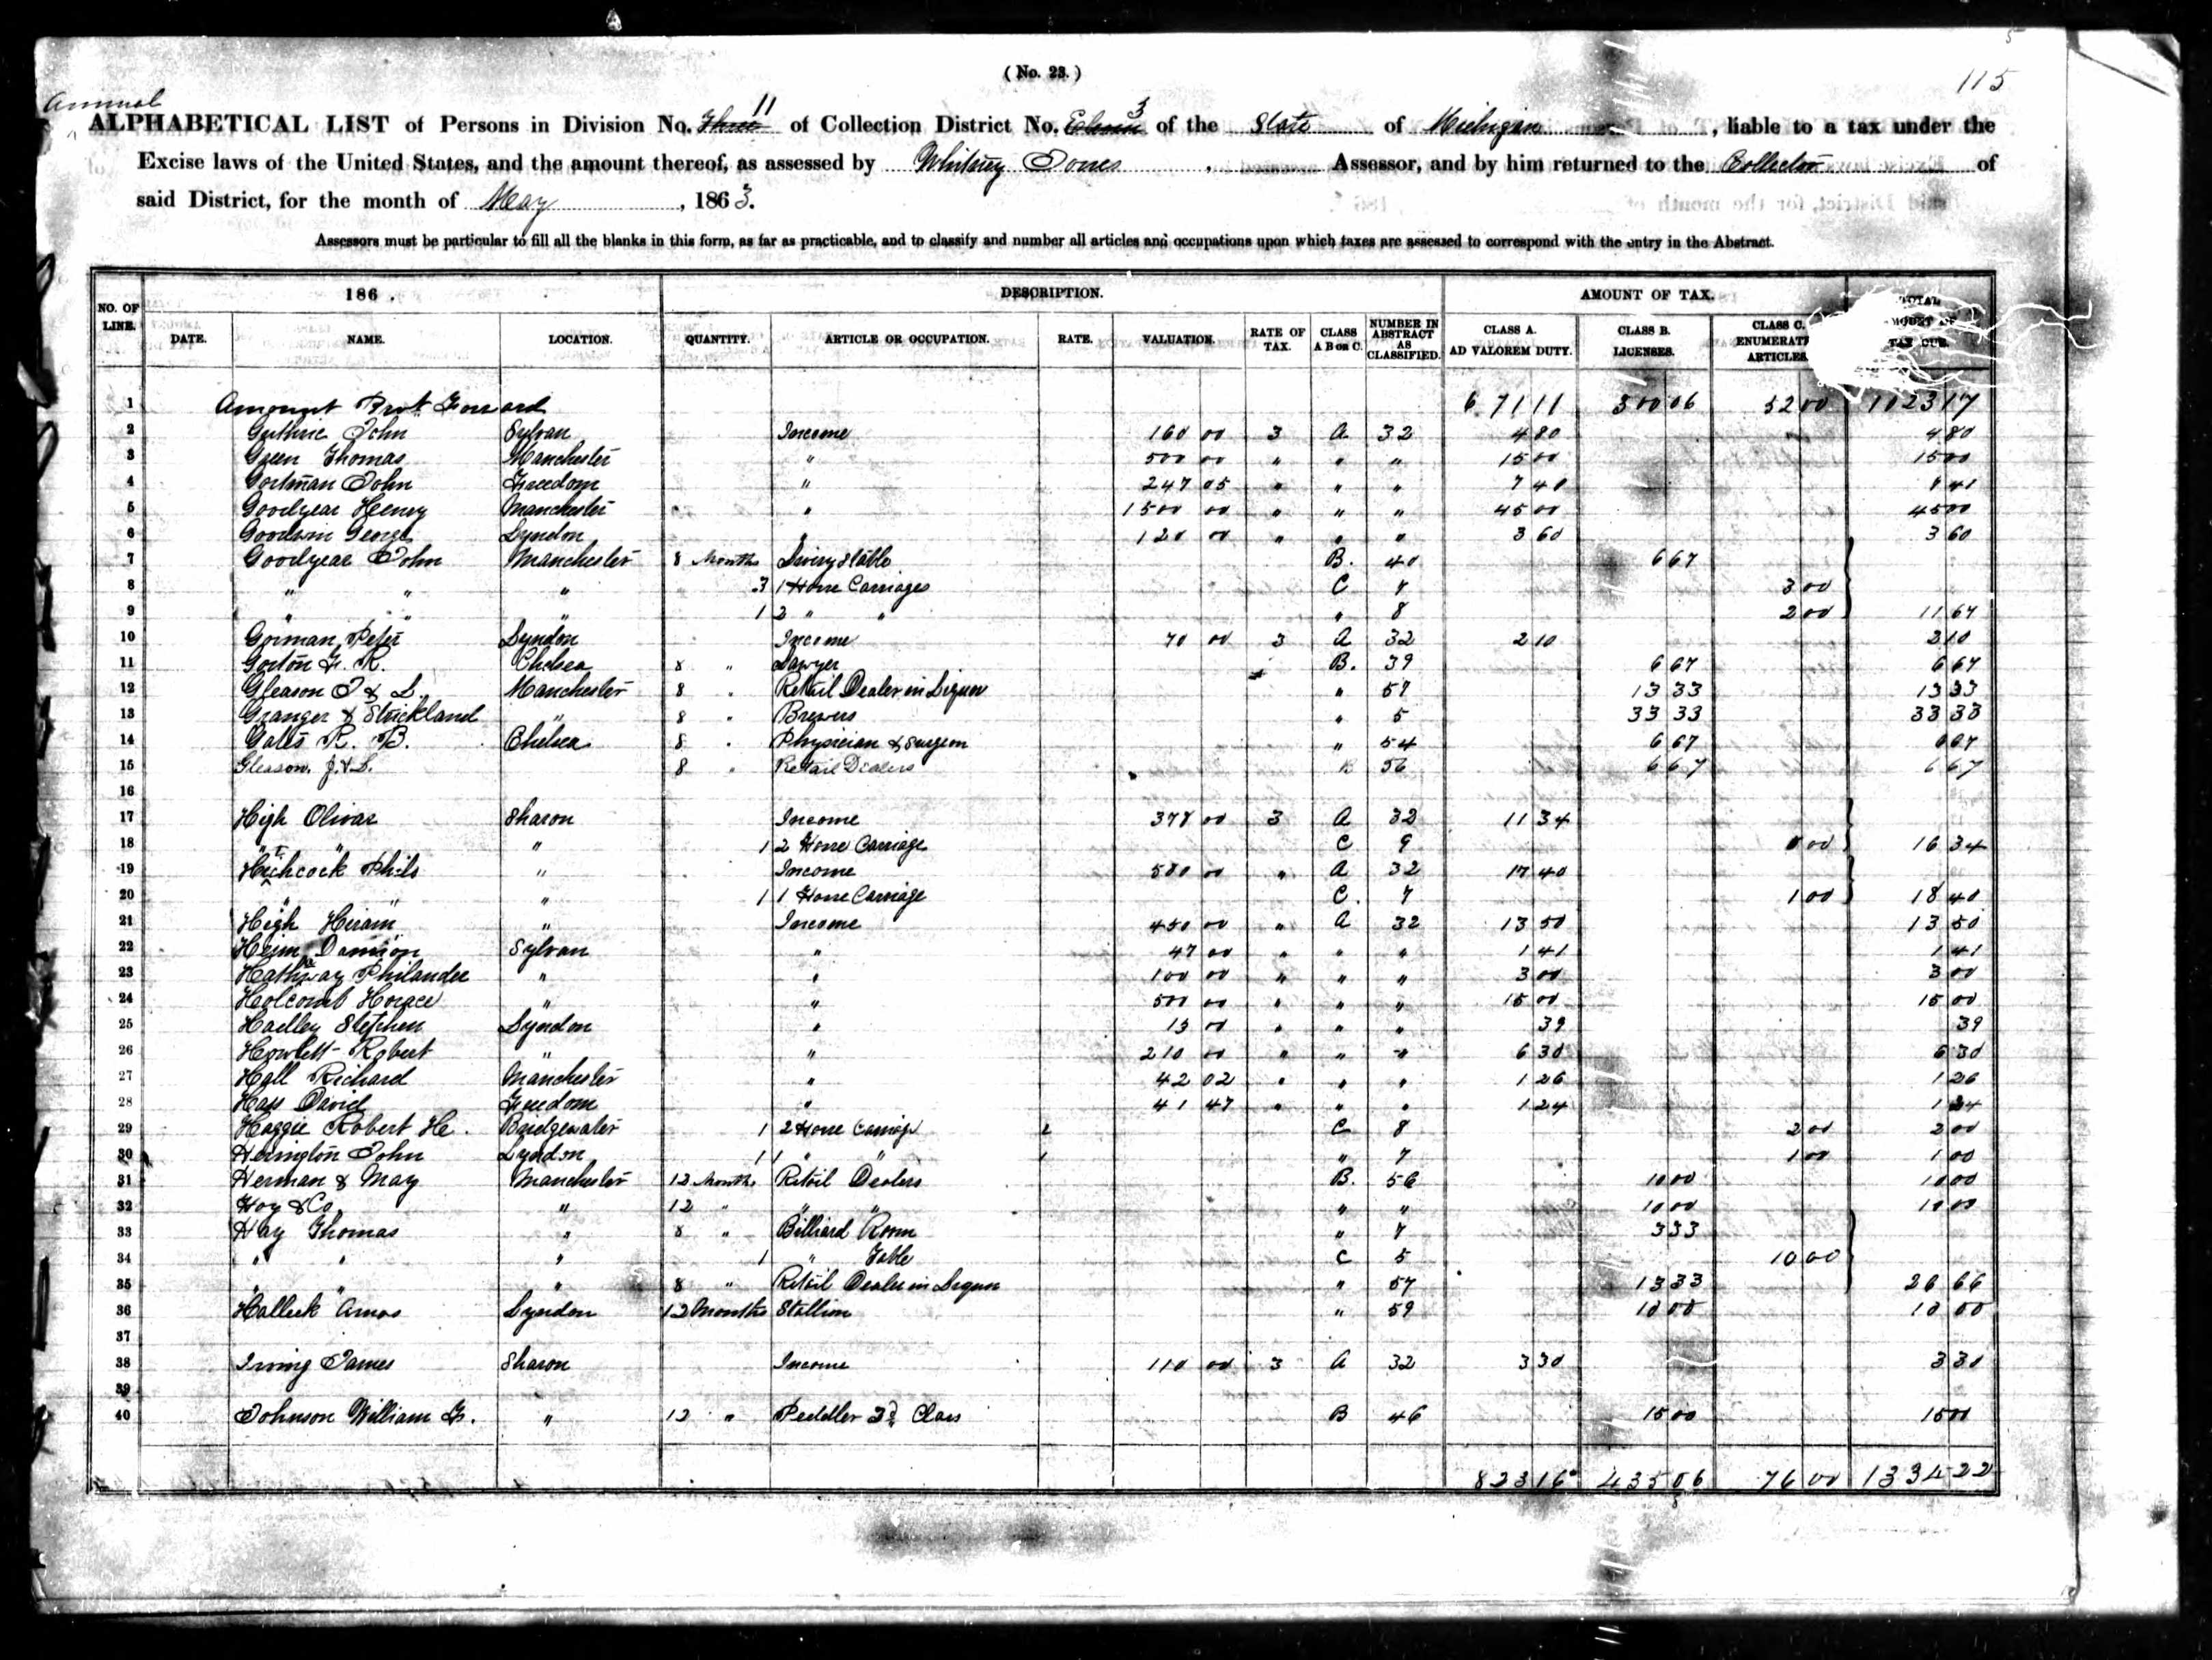 5
(No. 23.)
115
Annual
ALPHABETICAL LIST of Persons in Division No. Three 11 of Collection District No. Eleven 3 of the State of Michigan, liable to a tax under the
Excise laws of the United States, and the amount thereof, as assessed by Whitney Jones, Assessor, and by him returned to the Collector of
said District, for the month of May, 1863.
Assessors must be particular to fill all the blanks in this form, as far as practicable, and to classify and number all articles and occupations upon which taxes are assessed to correspond with the entry in the Abstract.
NO. OF LINE. 186 . DESCRIPTION. AMOUNT OF TAX. TOTAL AMOUNT OF TAX DUE.
DATE. NAME. LOCATION. QUANTITY. ARTICLE OR OCCUPATION. RATE. VALUATION. RATE OF TAX. CLASS A B or C. NUMBER IN ABSTRACT AS CLASSIFIED. CLASS A. AD VALOREM DUTY. CLASS B. LICENSES. CLASS C. ENUMERATED ARTICLES.
1 Amount Brot Forward 671 11 300 06 52 00 1023 17
2 Guthrie John Sylvan Income 160 00 3 A 32 4 80 4 80
3 Green Thomas Manchester " 500 00 " " " 15 00 15 00
4 Gortman John Freedom " 247 05 " " " 7 41 7 41
5 Goodyear Henry Manchester " 1500 00 " " " 45 00 45 00
6 Goodwin George Lyndon " 120 00 " " " 3 60 3 60
7 Goodyear John Manchester 8 Months Livery Stable B. 40 6 67
8 " " " 3 1 Horse Carriages C 7 3 00
9 " " " 1 2 " " " 8 2 00 11 67
10 Gorman Peter Lyndon Income 70 00 3 A 32 2 10 2 10
11 Gorton G. R. Chelsea 8 " Lawyer B. 39 6 67 6 67
12 Gleason J & L. Manchester 8 " Retail Dealer in Liquor " 57 13 33 13 33
13 Granger & Strickland " 8 " Brewers " 5 33 33 33 33
14 Gates R. B. Chelsea 8 " Physician & Surgeon " 54 6 67 6 67
15 Gleason. J. & L. 8 " Retail Dealers B 56 6 67 6 67
16
17 High Oliver Sharon Income 378 00 3 A 32 11 34
18 " " " 1 2 Horse Carriage C 9 5 00 16 34
19 Hitchcock Philo " Income 580 00 " A 32 17 40
20 " " " 1 1 Horse Carriage C. 7 1 00 18 40
21 High Hiram " Income 450 00 " A 32 13 50 13 50
22 Heim Damion Sylvan " 47 00 " " " 1 41 1 41
23 Hathaway Philander " " 100 00 " " " 3 00 3 00
24 Holcomb Horace " " 500 00 " " " 15 00 15 00
25 Hadley Stephen Lyndon " 13 00 " " " 39 39
26 Howlett Robert " " 210 00 " " " 6 30 6 30
27 Hall Richard Manchester " 42 02 " " " 1 26 1 26
28 Hass David Freedom " 41 47 " " " 1 24 1 24
29 Hoggie Robert H. Bridgewater 1 2 Horse Carriage 2 C 8 2 00 2 00
30 Herington John Lyndon 1 1 " " 1 " 7 1 00 1 00
31 Herman & May Manchester 12 Months Retail Dealers B. 56 10 00 10 00
32 Hoy & Co " 12 " " " " " 10 00 10 00
33 Hay Thomas " 8 " Billiard Room " 7 3 33
34 " " " 1 " Table C 5 10 00
35 " " " 8 " Retail Dealer in Liquor " 57 13 33 26 66
36 Halleck Amos Lyndon 12 Months Stallion " 59 10 00 10 00
37
38 Irving James Sharon Income 110 00 3 A 32 3 30 3 30
39
40 Johnson William G. " 12 " Peddler 3d Class B 46 15 00 15 00
823 16 435 06 76 00 1334 22